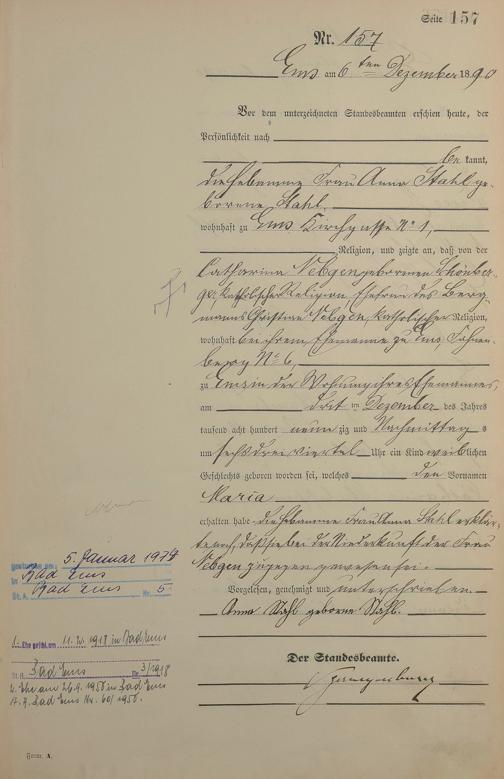 Seite 157
Nr. 157
Ems am 6ten Dezember 1890
Vor dem unterzeichneten Standesbeamten erschien heute, der
Persönlichkeit nach
be kannt,
die Hebamme Frau Anna Stahl ge-
borene Stahl,
wohnhaft zu Ems Kirchgasse No 1,
Religion, und zeigte an, daß von der
Catharina Nebgen geborenen Schönber-
ger, katholischer Religion, Ehefrau des Berg-
manns Christian Nebgen, katholischer Religion,
wohnhaft bei ihrem Ehemanne zu Ems,
No 6,
zu Ems in der Wohnung ihres Ehemannes,
am drit ten Dezember des Jahres
tausend acht hundert neun zig und Nachmittag s
um sechs drei viertel Uhr ein Kind weib lichen
Geschlechts geboren worden sei, welches den Vornamen
Maria
erhalten habe. die Hebamme Frau Anna Stahl erklär-
te, daß sie bei der Niederkunft der Frau
Nebgen zugegen gewesen sei.
Vorgelesen, genehmigt und unterschrieben.
Anna Stahl geborne Stahl.
Der Standesbeamte.
5. Januar 1974
in Bad Ems
St. A. Bad Ems Nr. 5
1. Ehe geschl. am 11. 2. 1918 in Bad Ems
St. A. Bad Ems Nr. 3/1918
2. Ehe am 26.9.1950 in Bad Ems
St. A. Bad Ems Nr. 60/1950.
Form. A.